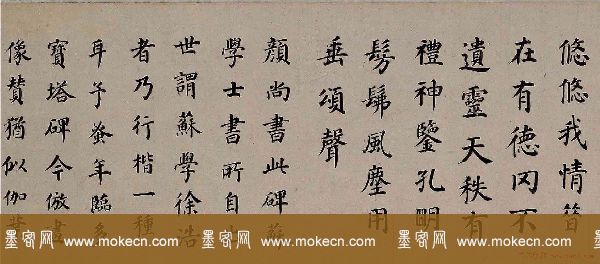 悠悠我情昔
在有德罔不
遺靈天秩有
禮神鑒孔明
髣髴風塵用
垂頌聲
顏尚書此碑蘇
學士書所自出
世謂蘇學徐浩
者乃行楷一種
耳予蚤年臨多
寶塔碑今倣畫
像贊猶似伽
墨客网 www.mokecn.com 墨客网 www.mokecn.com 墨客网 www.mokecn.com